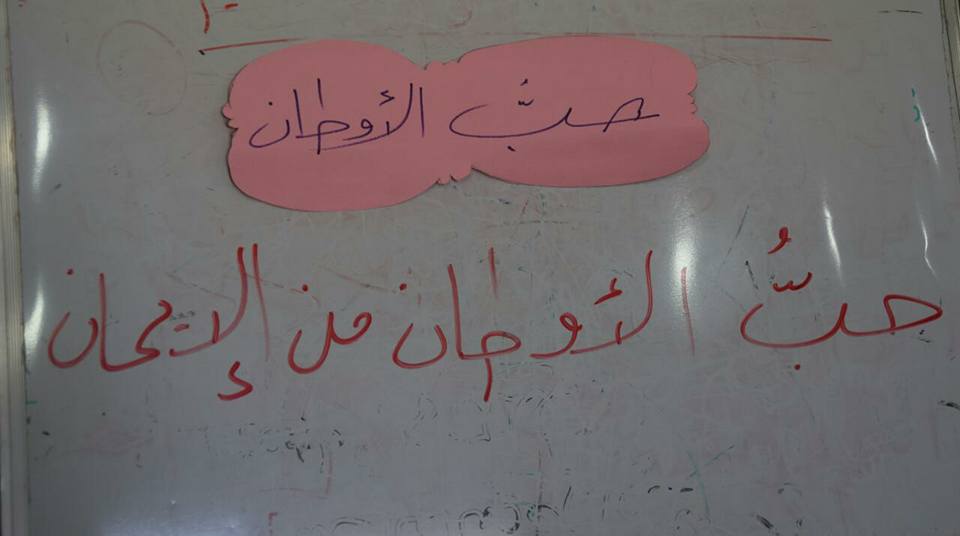 حبّ الأوطان
حُبّ الأوطان من الإيمان